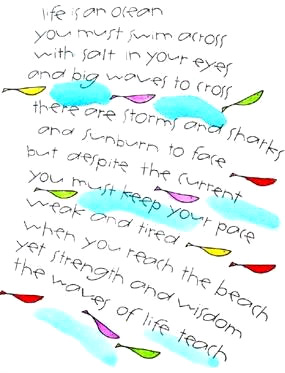 life is an ocean
you must swim across
with salt in your eyes
and big waves to cross
there are storms and sharks
and sunburn to face
but despite the current
you must keep your pace
weak and tired
when you reach the beach
yet strength and wisdom
the waves of life teach